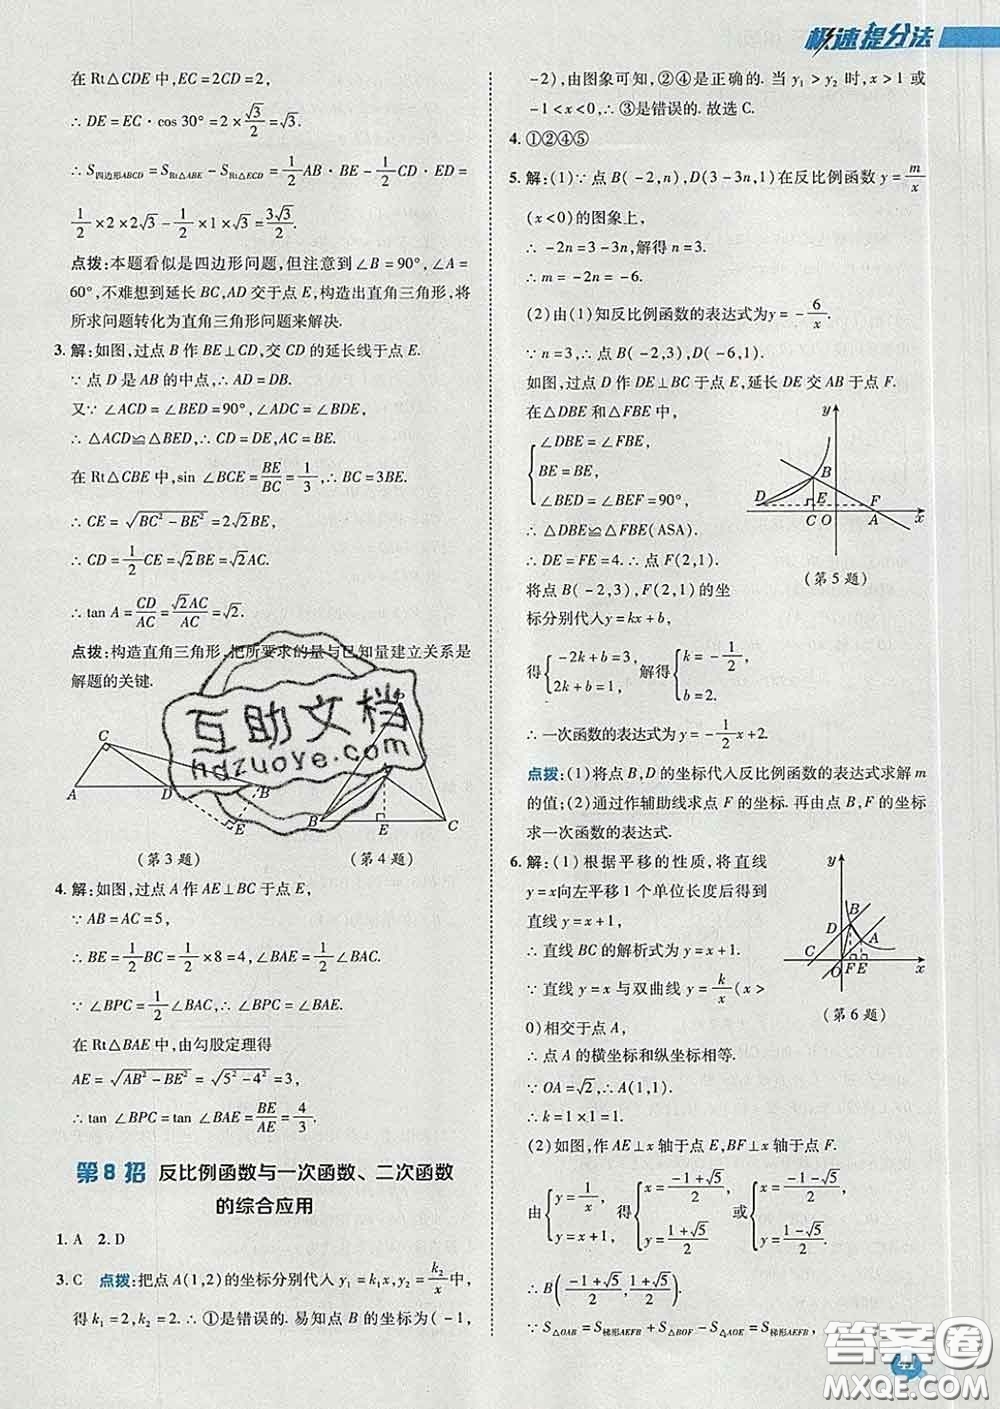 极速提分法
在 Rt△CDE 中,EC=2CD=2,
∴ DE=EC·cos 30°=2×√3/2=√3.
∴ S四边形ABCD=SRt△ABE-SRt△ECD=1/2AB·BE-1/2CD·ED=
1/2×2×2√3-1/2×1×√3=3√3/2.
点拨:本题看似是四边形问题,但注意到∠B=90°,∠A=
60°,不难想到延长BC,AD 交于点E,构造出直角三角形,将
所求问题转化为直角三角形问题来解决.
3. 解:如图,过点 B 作 BE⊥CD,交 CD 的延长线于点 E.
∵ 点 D 是 AB 的中点,∴ AD=DB.
又∵ ∠ACD=∠BED=90°,∠ADC=∠BDE,
∴ △ACD≌△BED,∴ CD=DE,AC=BE.
在 Rt△CBE 中,sin ∠BCE=BE/BC=1/3,∴ BC=3BE.
∴ CE=√(BC²-BE²)=2√2BE,
∴ CD=1/2CE=√2BE=√2AC.
∴ tan A=CD/AC=√2AC/AC=√2.
点拨:构造直角三角形,把所要求的量与已知量建立关系是
解题的关键.
互助文档
hdzuoye.com
C
A D B E
B E C
(第 3 题) (第 4 题)
4. 解:如图,过点 A 作 AE⊥BC 于点 E,
∵ AB=AC=5,
∴ BE=1/2BC=1/2×8=4,∠BAE=1/2∠BAC.
∵ ∠BPC=1/2∠BAC,∴ ∠BPC=∠BAE.
在 Rt△BAE 中,由勾股定理得
AE=√(AB²-BE²)=√(5²-4²)=3,
∴ tan ∠BPC=tan ∠BAE=BE/AE=4/3.
第 8 招 反比例函数与一次函数、二次函数
的综合应用
1. A 2. D
3. C 点拨:把点 A(1,2)的坐标分别代入 y₁=k₁x,y₂=k₂/x中,
得 k₁=2,k₂=2.∴ ①是错误的. 易知点 B 的坐标为(-1,
-2),由图象可知,②④是正确的. 当 y₁>y₂ 时,x>1 或
-1<x<0,∴ ③是错误的. 故选 C.
4. ①②④⑤
5. 解:(1)∵ 点 B(-2,n),D(3-3n,1)在反比例函数 y=m/x
(x<0)的图象上,
∴ -2n=3-3n,解得 n=3.
∴ m=-2n=-6.
(2)由(1)知反比例函数的表达式为y=-6/x.
∵ n=3,∴ 点 B(-2,3),D(-6,1).
如图,过点 D 作 DE⊥BC 于点 E,延长 DE 交 AB 于点 F.
在△DBE 和△FBE 中,
{∠DBE=∠FBE,
BE=BE,
∠BED=∠BEF=90°,
∴ △DBE≌△FBE(ASA).
∴ DE=FE=4.∴ 点 F(2,1).
y B D E F C O A x
(第 5 题)
将点 B(-2,3),F(2,1)的坐
标分别代入 y=kx+b,
得{-2k+b=3, 2k+b=1, 解得{k=-1/2, b=2.
∴ 一次函数的表达式为 y=-1/2x+2.
点拨:(1)将点 B,D 的坐标代入反比例函数的表达式求解 m
的值;(2)通过作辅助线求点 F 的坐标. 再由点 B,F 的坐标
求一次函数的表达式.
6. 解:(1)根据平移的性质,将直线
y=x向左平移 1 个单位长度后得到
直线 y=x+1,
∴ 直线 BC 的解析式为 y=x+1.
∵ 直线 y=x 与双曲线 y=k/x(x>
0)相交于点 A,
y B D A C O F E x
(第 6 题)
∴ 点 A 的横坐标和纵坐标相等.
∵ OA=√2,∴ A(1,1).
∴ k=1×1=1.
(2)如图,作 AE⊥x 轴于点 E,BF⊥x 轴于点 F.
由{y=1/x, y=x+1, 得{x=(-1+√5)/2, y=(1+√5)/2 或{x=(-1-√5)/2, y=(1-√5)/2.
∴ B((-1+√5)/2, (1+√5)/2).
∵ S△OAB=S梯形AEFB+S△BOF-S△AOE=S梯形AEFB,
41
答案圈
MXQE.COM